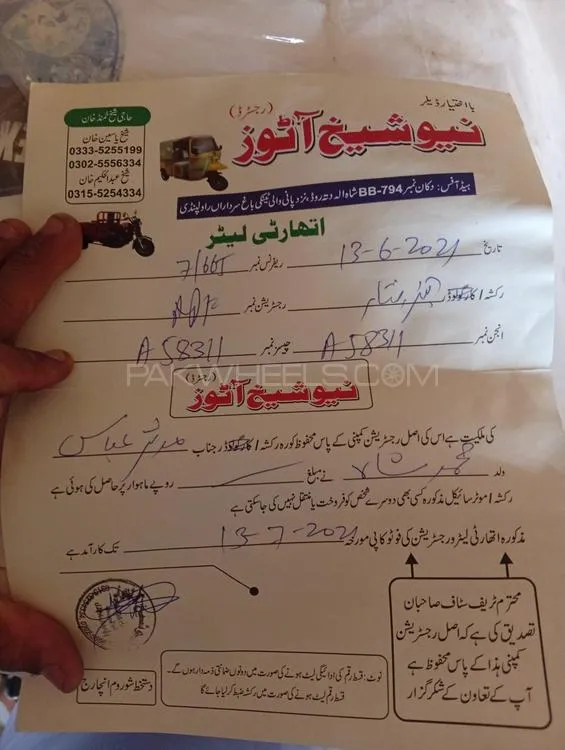 بااختیار ڈیلر
نیو شیخ آٹوز (رجسٹرڈ)
حاجی شیخ ٹمنڈ خان
شیخ یاسین خان
0333-5255199
0302-5556334
شیخ عبدالحکیم خان
0315-5254334
ہیڈ آفس: دکان نمبر BB-794 شاہ الہ دتہ روڈ، نزد پانی والی ٹینکی باغ سرداراں راولپنڈی
اتھارٹی لیٹر
تاریخ 13-6-2021 ریفرنس نمبر
رکشہ / رجسٹریشن نمبر APF
انجن نمبر A58311 چیسز نمبر A58311
PAKWHEELS.COM
نیو شیخ آٹوز (رجسٹرڈ)
کی ملکیت ہے اس کی اصل رجسٹریشن کمپنی کے پاس محفوظ ہے مذکورہ رکشہ / جناب مدثر عباس
ولد نے مبلغ روپے ماہوار پر حاصل کی ہوئی ہے
رکشہ / موٹر سائیکل مذکورہ کسی بھی دوسرے شخص کو فروخت یا منتقل نہیں کی جاسکتی ہے
مذکورہ اتھارٹی لیٹر و رجسٹریشن کی فوٹو کاپی مورخہ 13-7-2021 تک کارآمد ہے
محترم ٹریفک سٹاف صاحبان
تصدیق کی ہے کہ اصل رجسٹریشن
کمپنی ہذا کے پاس محفوظ ہے
آپ کے تعاون کے شکر گزار
نوٹ: قسط رقم کی ادائیگی لیٹ ہونے کی صورت میں دونوں ضامنی ذمہ دار ہوں گے۔
قسط رقم لیٹ ہونے کی صورت میں رکشہ ضبط کر لیا جائے گا
دستخط شوروم انچارج